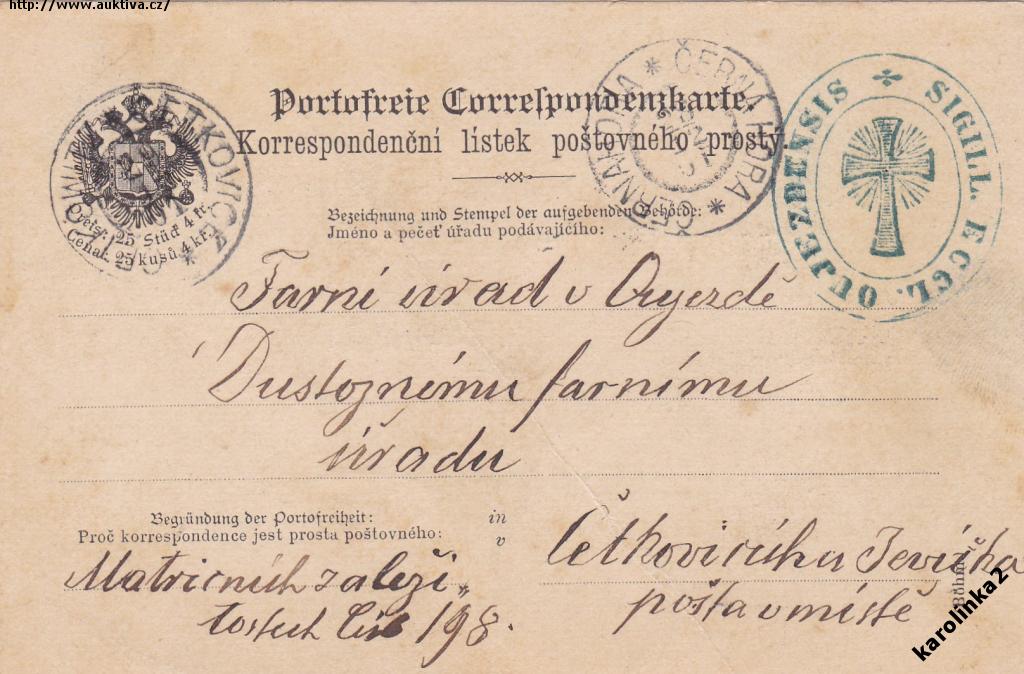 http://www.auktiva.cz/
Portofreie Correspondenzkarte.
Korrespondenční lístek poštovného prostý.
Bezeichnung und Stempel der aufgebenden Behörde:
Jméno a pečeť úřadu podávajícího:
25 Stück 4 kr.
25 kusů 4 kr.
CETKOVICE
* ČERNÁ HORA * ČERNAHORA
SIGILL. ECCL. OUJEZDENSIS
Farní úřad v Oujezdě
Dustojnému farnímu
úřadu
Begründung der Portofreiheit:
Proč korrespondence jest prosta poštovného:
in
v
Cetkovicích u Jevíčka
Matričních zaleži„
tostech Čís 198.
pošta v místě
Böhmisch
karolinka2